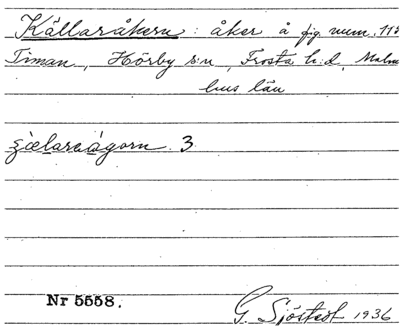 Källaråkern: åker å fig. num. 11
Timan, Hörby s:n, Frosta h:d, Malm
hus län
3
Nr 5558.
G. Sjöstedt 1936